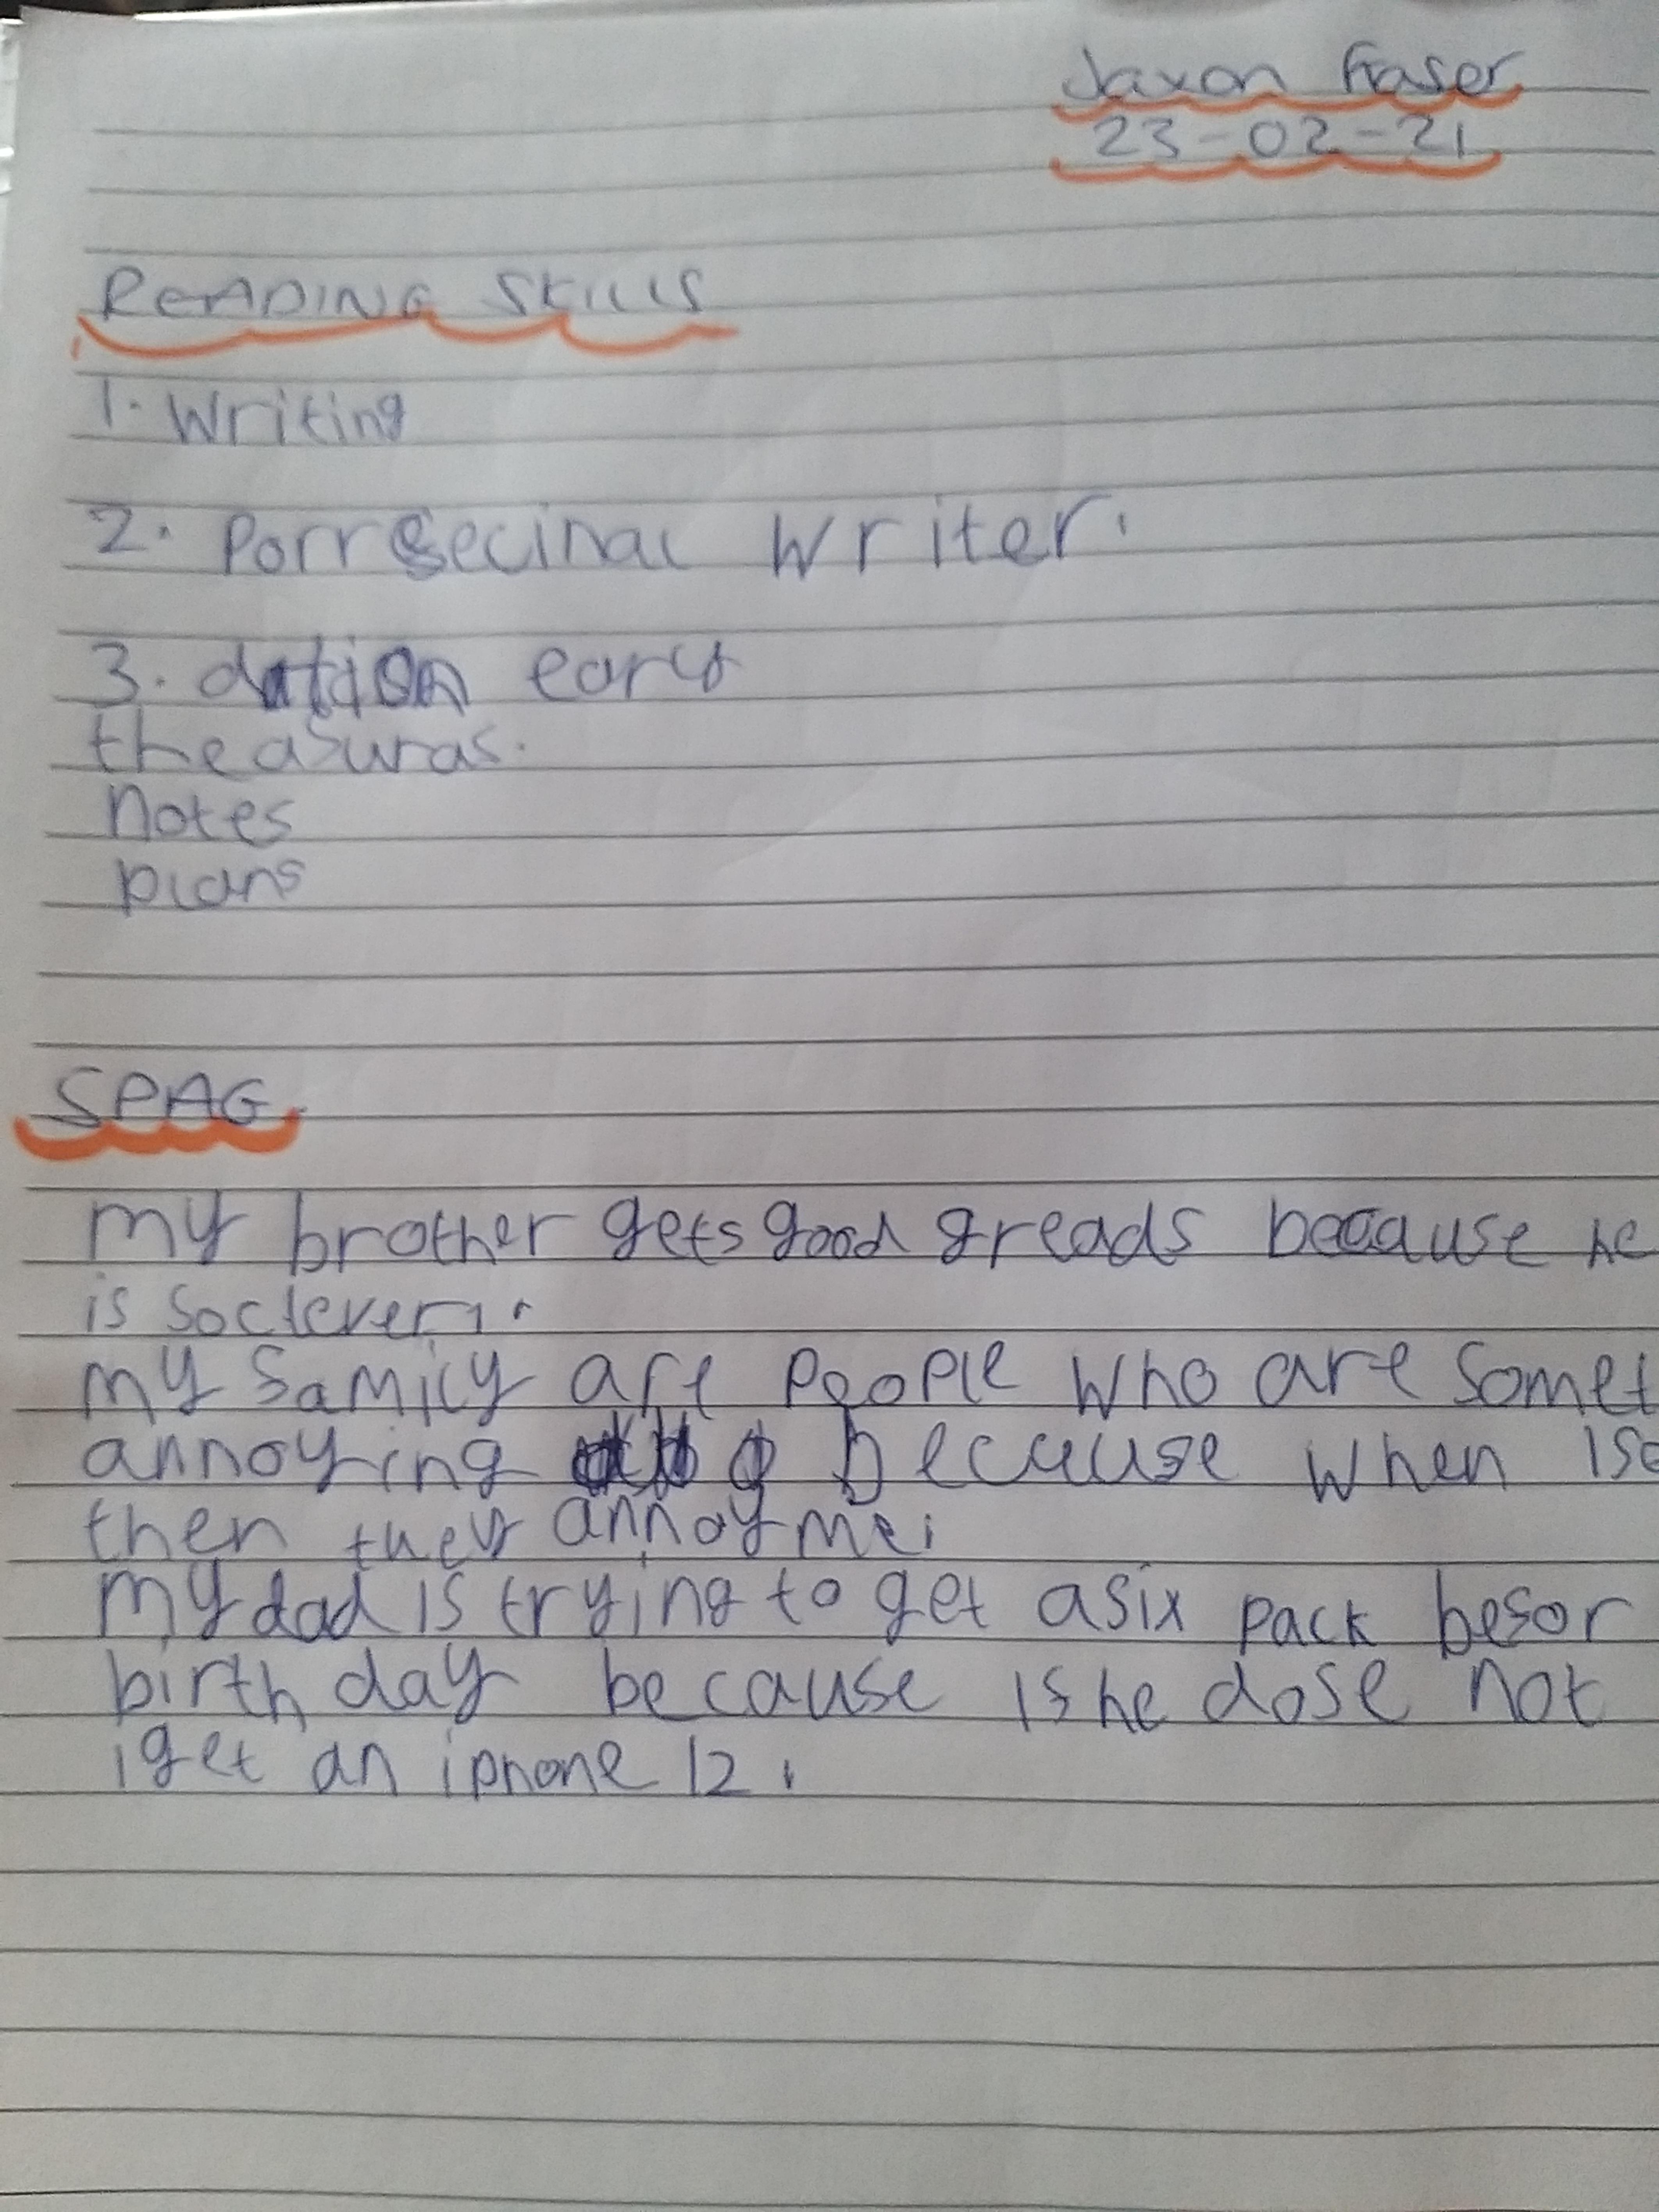 Jaxon Fraser
23-02-21
READING SKILLS
1. Writing
2. Porrsecinal writer.
3. dation eary
theasuras.
Notes
plans
SPAG
my brother gets good greads because he
is so clever.
my samily are people who are somet
annoying because when
then they annoy me.
my dad is trying to get a six pack besor
birthday because is he dose not
i get an iphone 12.